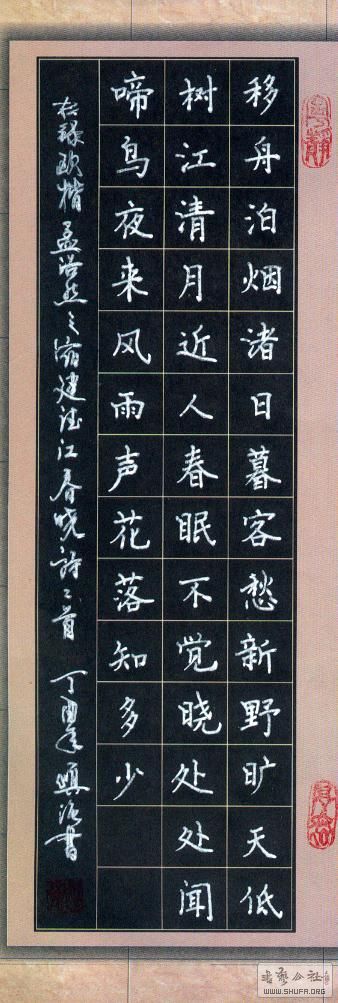 移舟泊烟渚日暮客愁新野旷天低
树江清月近人春眠不觉晓处处闻
啼鸟夜来风雨声花落知多少
欧楷孟浩然之宿建德江春晓诗二首 丁酉年 书
WWW.SHUFA.ORG